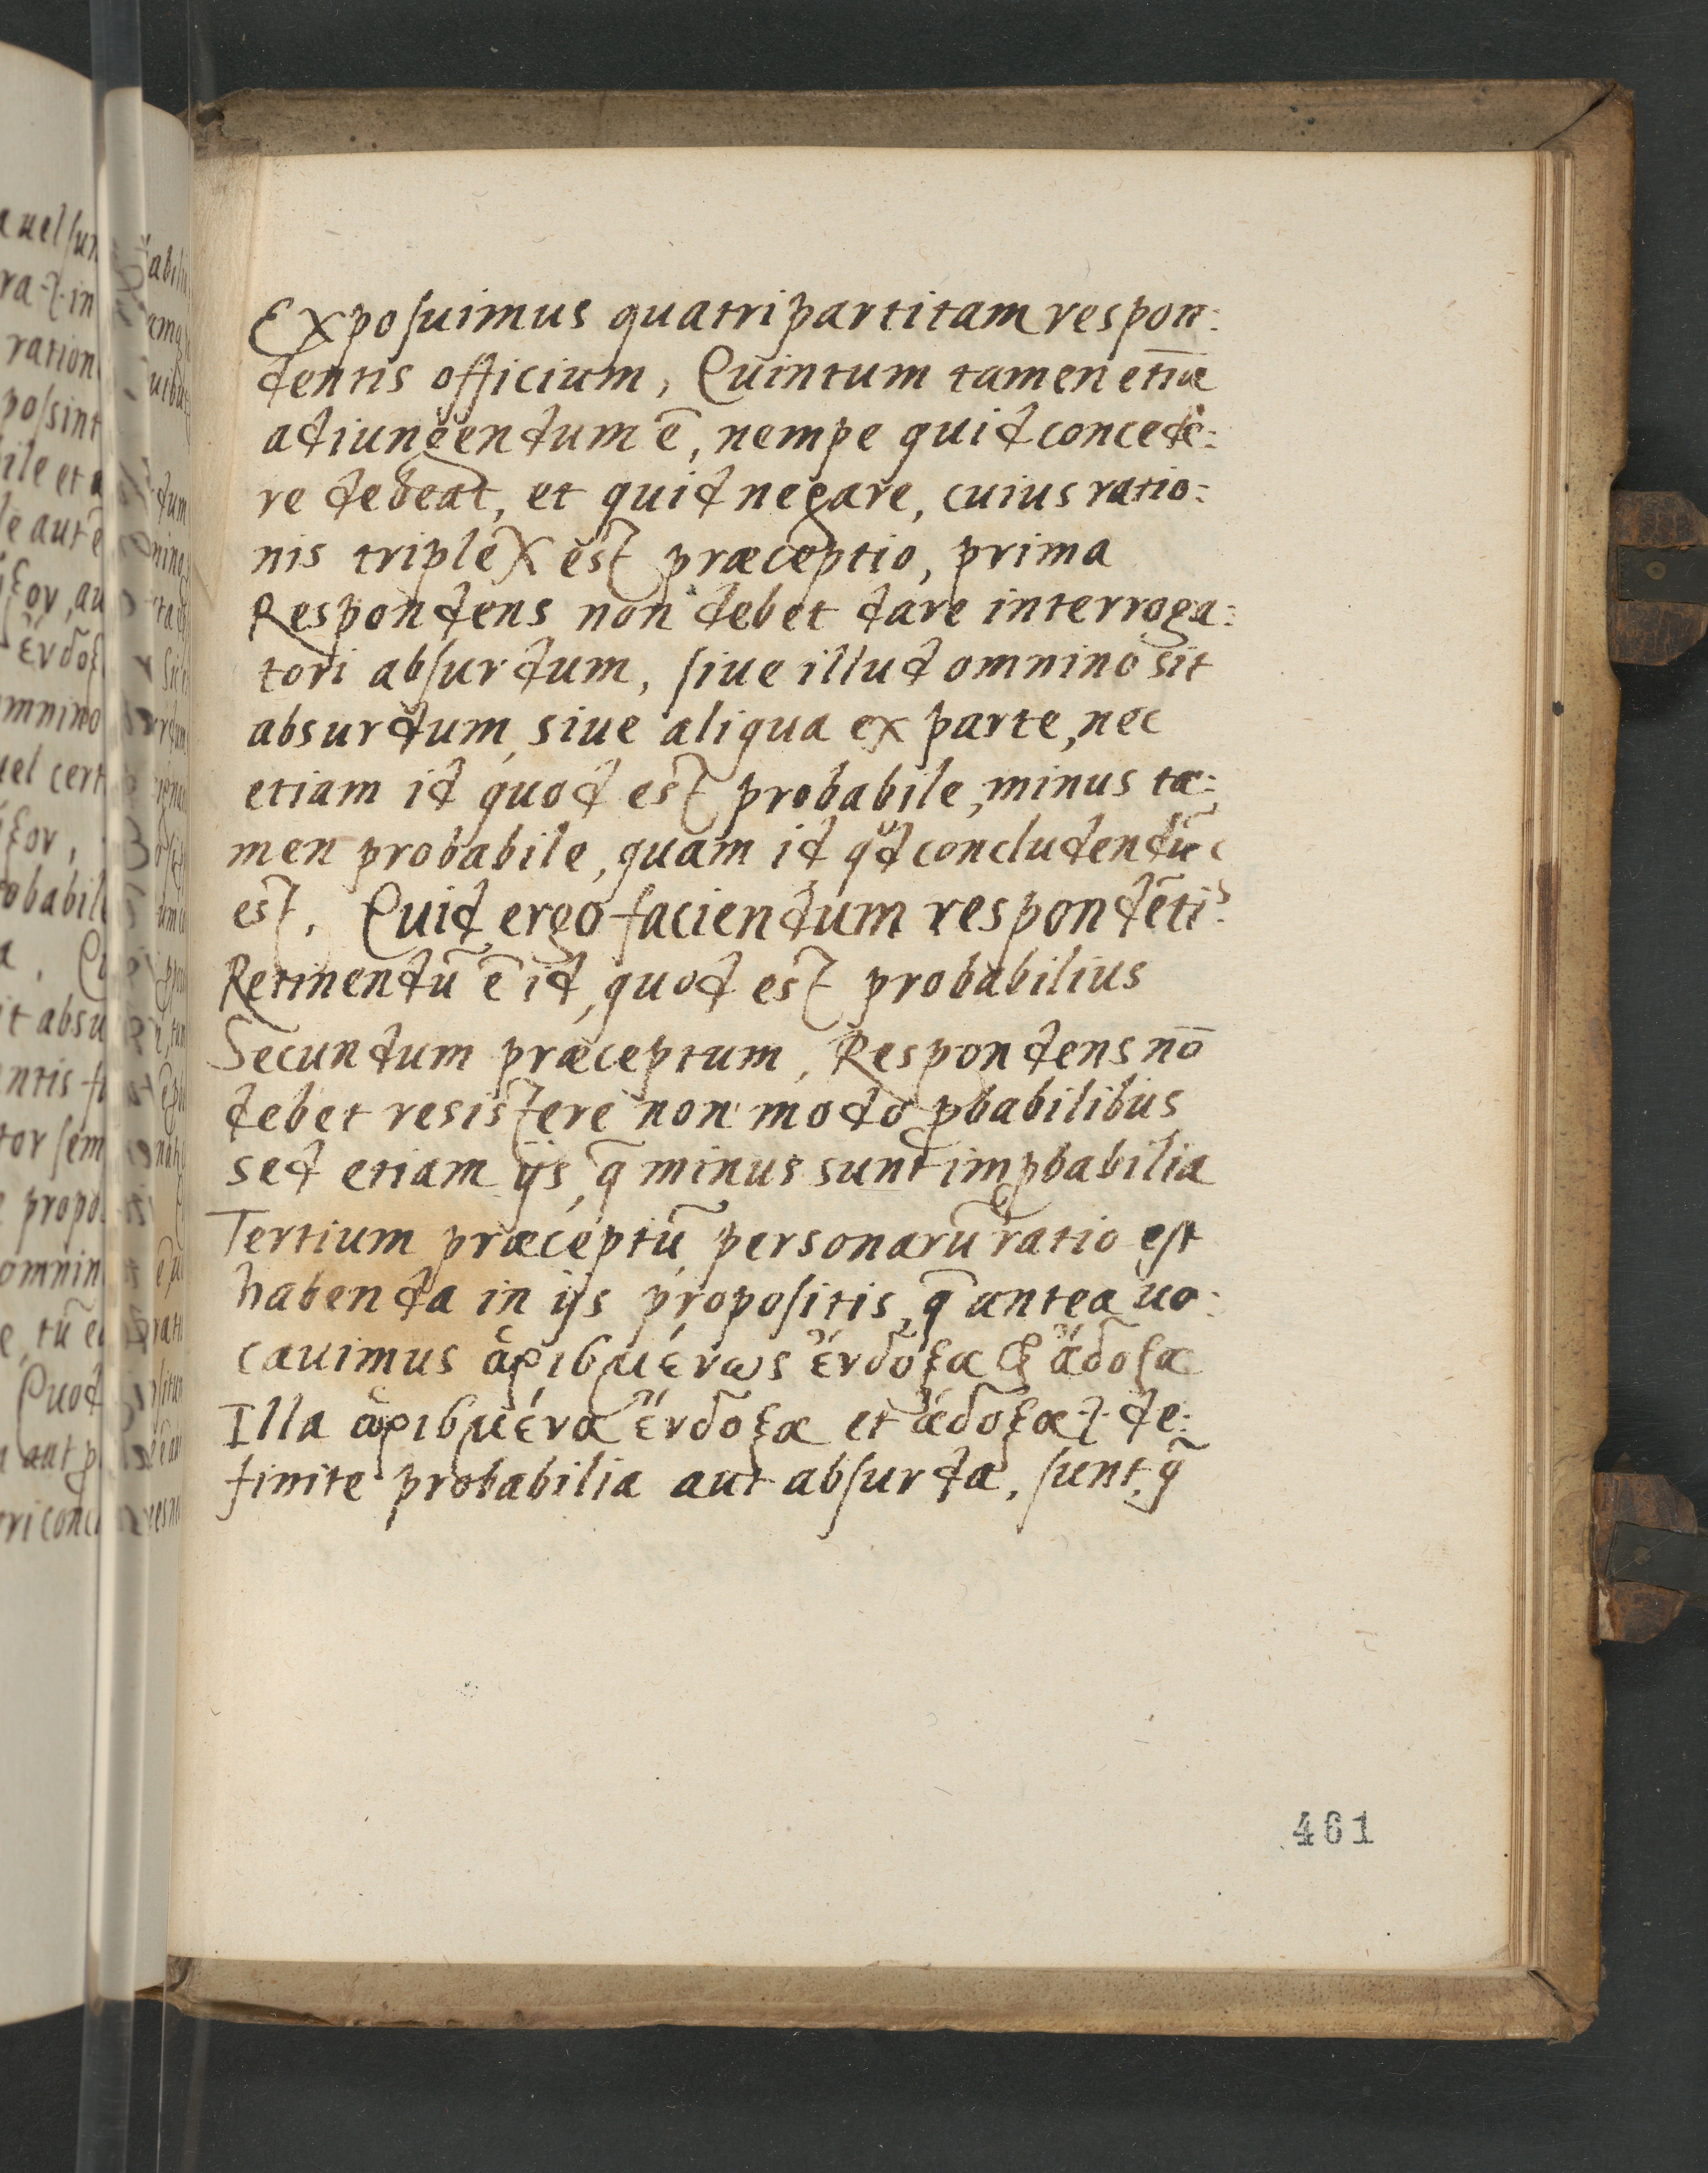 Exposuimus quatripartitam respon:
dentis officium, Quintum tamen etiā
adiungendum ē, nempe quid concede:
re debeat, et quid negare, cuius ratio:
nis triplex est præceptio, prima
Respondens non debet dare interroga:
tori absurdum, siue illud omnino sit
absurdum, siue aliqua ex parte, nec
etiam id quod est probabile, minus ta:
men probabile, quam id qđ concludendū
est. Quid ergo faciendum respondēti?
Retinendū ē id, quod est probabilius
Secundum præceptum, Respondens nō
debet resistere non modo ꝓbabilibus
sed etiam ijs, q̄ minus sunt imꝓbabilia
Tertium præceptū, personarū ratio est
habenda in ijs propositis, q̄ antea uo:
cauimus ὡρισμένως ἔνδοξα & ἄδοξα
Illa ὡρισμένα ἔνδοξα et ἄδοξα .i. de:
finite probabilia aut absurda, sunt, q̄
461